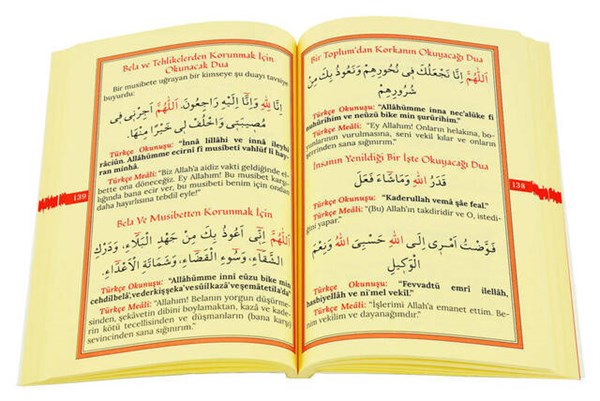 Bela ve Tehlikelerden Korunmak İçin
Okunacak Dua
Bir musibete uğrayan bir kimseye şu duayı tavsiye
buyurdu:
اِنَّا لِلّٰهِ وَاِنَّٓا اِلَيْهِ رَاجِعُونَ. اَللّٰهُمَّ اٰجِرْنٖى فٖى
مُصٖيبَتٖى وَاخْلُفْ لٖى خَيْرًا مِنْهَا.
Türkçe Okunuşu: "İnnâ lillâhi ve innâ ileyhi
râciûn. Allâhümme ecirnî fî musîbetî vahlüf lî hay-
ran minhâ.
Türkçe Meâli: "Biz Allah'a aidiz vakti geldiğinde el-
bette ona döneceğiz. Ey Allahım! Bu musibet karşı-
lığında bana ecir ver, bu musibeti benim için ondan
daha hayırlısına tebdil eyle!"
Bela Ve Musibetten Korunmak İçin
اَللّٰهُمَّ اِنّٖى اَعُوذُ بِكَ مِنْ جَهْدِ الْبَلَٓاءِ، وَدَرَكِ
الشَّقَٓاءِ، وَسُٓوءِ الْقَضَٓاءِ، وَشَمَاتَةِ الْاَعْدَٓاءِ.
Türkçe Okunuşu: "Allâhümme innî eûzu bike min
cehdilbelâ, vederkişşeka' vesûilkazâ' veşemâtetila'da"
Türkçe Meâli: "Allahım! Belanın yorgun düşürme-
sinden, şekâvetin dibini boylamaktan, kazâ ve kade-
rin kötü tecellisinden ve düşmanların (bana karşı)
sevincinden sana sığınırım."
139
Bir Toplum'dan Korkanın Okuyacağı Dua
اَللّٰهُمَّ اِنَّا نَجْعَلُكَ فٖى نُحُورِهِمْ وَنَعُوذُ بِكَ مِنْ
شُرُورِهِمْ
Türkçe Okunuşu: "Allâhümme inna nec'alüke fî
nuhûrihim ve neûzü bike min şurûrihim."
Türkçe Meâli: "Ey Allahım! Onların helakına, bo-
yunlarının vurulmasına, seni vekil ettik ve onların şer-
lerinden sana sığınırım."
İnsanın Yenildiği Bir İşte Okuyacağı Dua
قَدَرُ اللهِ وَمَاشَٓاءَ فَعَلَ
Türkçe Okunuşu: "Kaderullah vemâ şâe feal."
Türkçe Meâli: "(Bu) Allah'ın takdiridir ve O, istedi-
ğini yapar."
فَوَّضْتُ اَمْرٖى اِلَى اللهِ حَسْبِىَ اللهُ وَنِعْمَ
الْوَكٖيلُ
Türkçe Okunuşu: "Fevvadtü emrî ilellâh,
hasbiyellâh ve ni'mel vekîl."
Türkçe Meâli: "İşlerimi Allah'a emanet ettim. Be-
nim vekilim ve dayanağımdır."
138